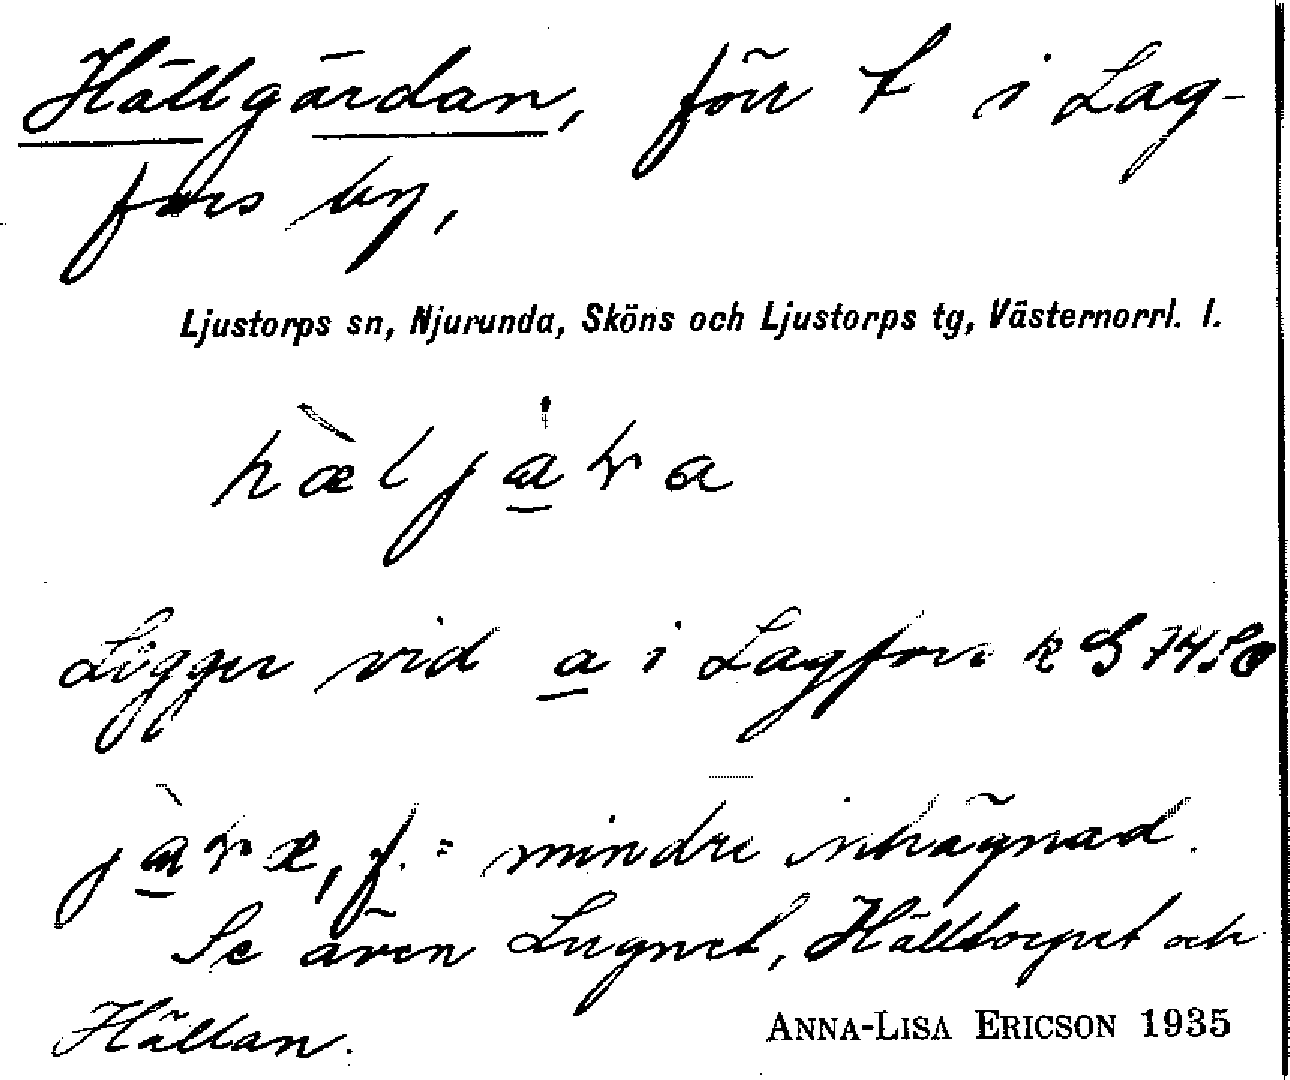 Hällgärdan, förr t i Lag-
fors by,
Ljustorps sn, Njurunda, Sköns och Ljustorps tg, Västernorrl. l.
hæl jara
Ligger vid a i Lagfors
f. = mindre inhägnad.
Se även Lugnet, Hälltorpet och
Hällan.
ANNA-LISA ERICSON 1935